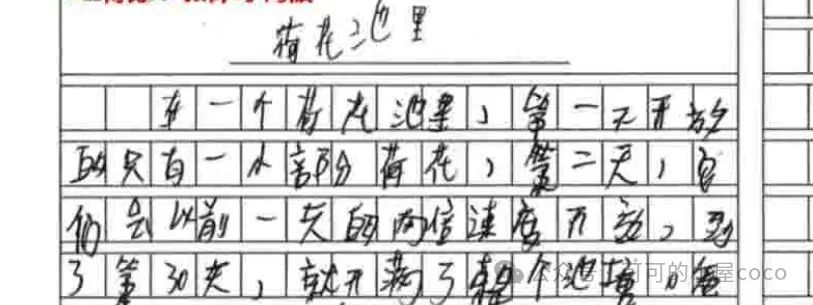 荷花池里
在一个荷花池里，第一天开放
的只有一小部分荷花，第二天，它
们会以前一天的两倍速度开放，到
了第30天，就开满了整个池塘。
公众号 可可的小屋coco